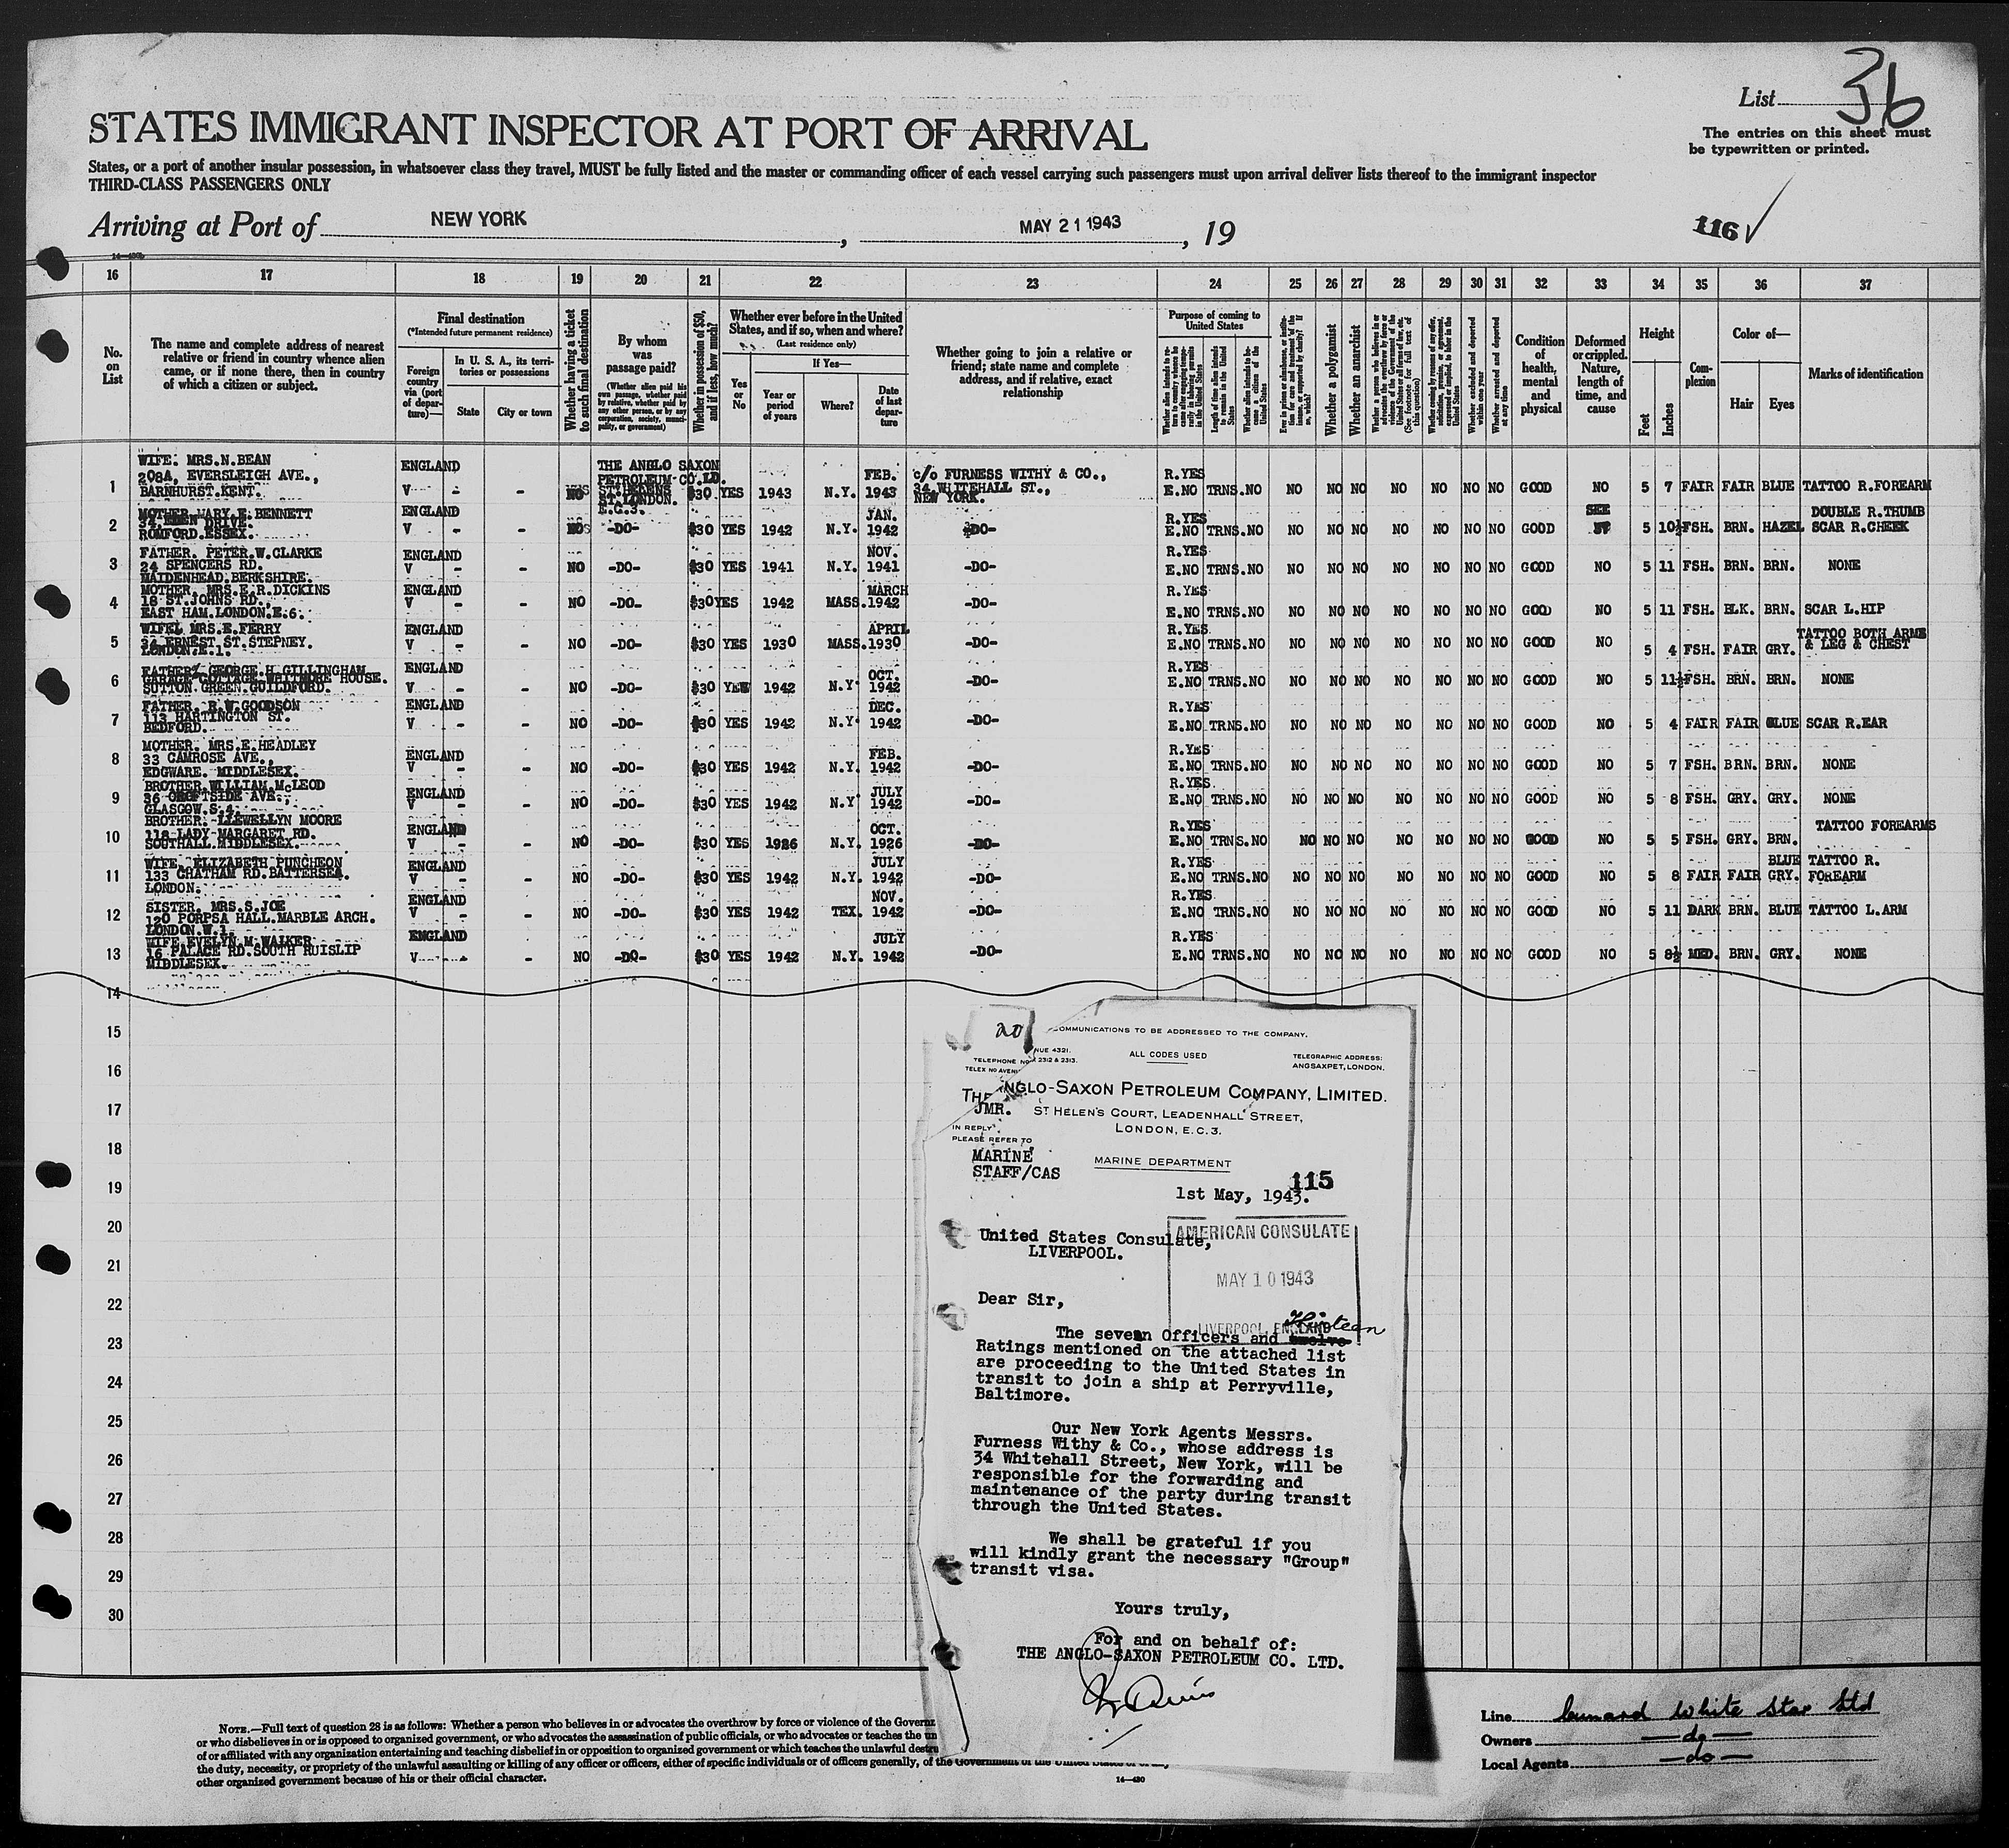 List 36
The entries on this sheet must
be typewritten or printed.
STATES IMMIGRANT INSPECTOR AT PORT OF ARRIVAL
States, or a port of another insular possession, in whatsoever class they travel, MUST be fully listed and the master or commanding officer of each vessel carrying such passengers must upon arrival deliver lists thereof to the immigrant inspector
THIRD-CLASS PASSENGERS ONLY
Arriving at Port of NEW YORK, MAY 21 1943, 19
116
16 17 18 19 20 21 22 23 24 25 26 27 28 29 30 31 32 33 34 35 36 37
No. on List
The name and complete address of nearest relative or friend in country whence alien came, or if none there, then in country of which a citizen or subject.
Final destination
(*Intended future permanent residence)
Foreign country via (port of departure)—
In U. S. A., its territories or possessions
State
City or town
Whether having a ticket to such final destination
By whom was passage paid?
(Whether alien paid his own passage, whether paid by relative, whether paid by any other person, or by any corporation, society, municipality, or government)
Whether in possession of $50, and if less, how much?
Whether ever before in the United States, and if so, when and where?
(Last residence only)
Yes or No
If Yes—
Year or period of years
Where?
Date of last departure
Whether going to join a relative or friend; state name and complete address, and if relative, exact relationship
Purpose of coming to United States
Length of time alien intends to remain in the United States
Whether alien intends to become a citizen of the United States
Whether a polygamist
Whether an anarchist
Whether excluded and deported within one year
Whether arrested and deported at any time
Condition of health, mental and physical
Deformed or crippled. Nature, length of time, and cause
Height
Feet
Inches
Complexion
Color of—
Hair
Eyes
Marks of identification
1 WIFE. MRS.N.BEAN 208A, EVERSLEIGH AVE., BARNHURST.KENT. ENGLAND V - - NO THE ANGLO SAXON PETROLEUM CO.LD. ST.HELENS CT.LONDON. E.C.3. $30 YES 1943 N.Y. FEB. 1943 c/o FURNESS WITHY & CO., 34 WHITEHALL ST., NEW YORK. R.YES E.NO TRNS.NO NO NO NO NO NO NO NO GOOD NO 5 7 FAIR FAIR BLUE TATTOO R.FOREARM
2 MOTHER MARY E. BENNETT 34, EDEN DRIVE. ROMFORD.ESSEX. ENGLAND V - - NO -DO- $30 YES 1942 N.Y. JAN. 1942 -DO- R.YES E.NO TRNS.NO NO NO NO NO NO NO NO GOOD SEE 37 5 10½ FSH. BRN. HAZEL DOUBLE R.THUMB SCAR R.CHEEK
3 FATHER. PETER.W.CLARKE 24 SPENCERS RD. MAIDENHEAD.BERKSHIRE. ENGLAND V - - NO -DO- $30 YES 1941 N.Y. NOV. 1941 -DO- R.YES E.NO TRNS.NO NO NO NO NO NO NO NO GOOD NO 5 11 FSH. BRN. BRN. NONE
4 MOTHER. MRS.E.R.DICKINS 18 ST.JOHNS RD. EAST HAM.LONDON.E.6. ENGLAND V - - NO -DO- $30 YES 1942 MASS. MARCH 1942 -DO- R.YES E.NO TRNS.NO NO NO NO NO NO NO NO GOOD NO 5 11 FSH. BLK. BRN. SCAR L.HIP
5 WIFE. MRS.E.FERRY 34 ERNEST ST.STEPNEY. LONDON.E.1. ENGLAND V - - NO -DO- $30 YES 1930 MASS. APRIL 1930 -DO- R.YES E.NO TRNS.NO NO NO NO NO NO NO NO GOOD NO 5 4 FSH. FAIR GRY. TATTOO BOTH ARMS & LEG & CHEST
6 FATHER. GEORGE.H GILLINGHAM GARAGE COTTAGE.WHITMORE HOUSE. SUTTON.GREEN.GUILDFORD. ENGLAND V - - NO -DO- $30 YES 1942 N.Y. OCT. 1942 -DO- R.YES E.NO TRNS.NO NO NO NO NO NO NO NO GOOD NO 5 11½ FSH. BRN. BRN. NONE
7 FATHER. R.W.GOODSON 113 HARTINGTON ST. BEDFORD. ENGLAND V - - NO -DO- $30 YES 1942 N.Y. DEC. 1942 -DO- R.YES E.NO TRNS.NO NO NO NO NO NO NO NO GOOD NO 5 4 FAIR FAIR BLUE SCAR R.EAR
8 MOTHER. MRS.E.HEADLEY 33 CAMROSE AVE., EDGWARE. MIDDLESEX. ENGLAND V - - NO -DO- $30 YES 1942 N.Y. FEB. 1942 -DO- R.YES E.NO TRNS.NO NO NO NO NO NO NO NO GOOD NO 5 7 FSH. BRN. BRN. NONE
9 BROTHER.WILLIAM.McLEOD 36 CROFTSIDE AVE., GLASGOW.S.4. ENGLAND V - - NO -DO- $30 YES 1942 N.Y. JULY 1942 -DO- R.YES E.NO TRNS.NO NO NO NO NO NO NO NO GOOD NO 5 8 FSH. GRY. GRY. NONE
10 BROTHER. LLEWELLYN MOORE 118 LADY MARGARET RD. SOUTHALL.MIDDLESEX. ENGLAND V - - NO -DO- $30 YES 1926 N.Y. OCT. 1926 -DO- R.YES E.NO TRNS.NO NO NO NO NO NO NO NO GOOD NO 5 5 FSH. GRY. BRN. TATTOO FOREARMS
11 WIFE. ELIZABETH PUNCHEON 133 CHATHAM RD.BATTERSEA. LONDON. ENGLAND V - - NO -DO- $30 YES 1942 N.Y. JULY 1942 -DO- R.YES E.NO TRNS.NO NO NO NO NO NO NO NO GOOD NO 5 8 FAIR FAIR BLUE GRY. TATTOO R. FOREARM
12 SISTER. MRS.S.JOE 120 PORPSA HALL.MARBLE ARCH. LONDON.W.1. ENGLAND V - - NO -DO- $30 YES 1942 TEX. NOV. 1942 -DO- R.YES E.NO TRNS.NO NO NO NO NO NO NO NO GOOD NO 5 11 DARK BRN. BLUE TATTOO L.ARM
13 WIFE.EVELYN.M.WALKER 16 PALACE RD.SOUTH RUISLIP MIDDLESEX. ENGLAND V - - NO -DO- $30 YES 1942 N.Y. JULY 1942 -DO- R.YES E.NO TRNS.NO NO NO NO NO NO NO NO GOOD NO 5 8½ MED. BRN. GRY. NONE
14
15
16
17
18
19
20
21
22
23
24
25
26
27
28
29
30
20
COMMUNICATIONS TO BE ADDRESSED TO THE COMPANY.
ALL CODES USED
TELEGRAPHIC ADDRESS:
ANGSAXPET, LONDON.
THE ANGLO-SAXON PETROLEUM COMPANY, LIMITED.
JMR. ST HELEN'S COURT, LEADENHALL STREET,
LONDON, E.C.3.
IN REPLY
PLEASE REFER TO
MARINE
STAFF/CAS
MARINE DEPARTMENT
115
1st May, 1943.
United States Consulate,
LIVERPOOL.
AMERICAN CONSULATE
MAY 10 1943
LIVERPOOL, ENGLAND
Dear Sir,
The seven Officers and twelve Thirteen
Ratings mentioned on the attached list
are proceeding to the United States in
transit to join a ship at Perryville,
Baltimore.
Our New York Agents Messrs.
Furness Withy & Co., whose address is
34 Whitehall Street, New York, will be
responsible for the forwarding and
maintenance of the party during transit
through the United States.
We shall be grateful if you
will kindly grant the necessary "Group"
transit visa.
Yours truly,
For and on behalf of:
THE ANGLO-SAXON PETROLEUM CO. LTD.
NOTE.—Full text of question 28 is as follows: Whether a person who believes in or advocates the overthrow by force or violence of the Governm
or who disbelieves in or is opposed to organized government, or who advocates the assassination of public officials, or who advocates or teaches the un
of or affiliated with any organization entertaining and teaching disbelief in or opposition to organized government or which teaches the unlawful destru
the duty, necessity, or propriety of the unlawful assaulting or killing of any officer or officers, either of specific individuals or of officers generally, of the Government of the United States or of any
other organized government because of his or their official character.
14—430
Line Cunard White Star Ltd
Owners —do—
Local Agents —do—